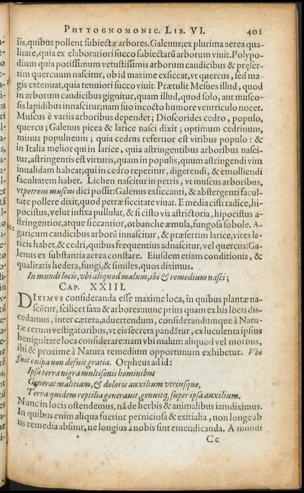 PHYTOGNOMONIC. LIB. VI. 401
iis, quibus pollent subiectæ arbores. Galenus; ex plurima aerea qua-
litate, quia ex elaboratiori succo subiectarũ arborum viuit. Polypo-
dium quia potissimum vetustissimis arborum caudicibus & præser-
tim quercuum nascitur, ob id maxime exsiccat, vt quercus, sed ma-
gis extenuat, quia tenuiori succo viuit. Prætulit Mesues illud, quod
in arborum caudicibus gignitur, quam illud, quod solo, aut musco-
sis lapidibus innascitur; nam suo incocto humore ventriculo nocet.
Muscus è variis arboribus dependet; Dioscorides cedro, populo,
quercu; Galenus picea & larice nasci dixit; optimum cedrinum,
minus populneum; quia cedrus refertior est viribus populo: &
in Italia melior quì in larice, quia astringentibus arboribus nasci-
tur, astringentis est virtutis, quam in populis, quum astringendi vim
inualidam habeat; qui in cedro repertitur, digerendi, & emolliendi
facultatem habet. Lichen nascitur in petris, vt muscus arboribus,
vt petrens muscus dici possit: Galenus exsiccanti, & abstergenti facul-
tate pollere dixit, quod petræ siccitate viuat. E media cisti radice, hi-
pocistus, velut infixa pullulat, & si cisto vis astrictoria, hipocistus a-
stringentior, atque siccantior, orbanche æmula, fungosa sobole. A-
garicum caudicibus arbori innascitur, & præsertim larice, vires la-
ricis habet, & cedri, quibus frequentius adnascitur, vel quercus: Ga-
lenus ex substantia aerea constare. Eiusdem etiam conditionis, &
qualitatis hedera, fungi, & similes, quos diximus.
In mundi locis, vbi aliquod malum, ibi & remedium nasci;
CAP. XXIII.
DIXIMVS consideranda esse maxime loca, in quibus plantæ na-
scũtur, scilicet saxa & arbores: nunc priusquam ex his locis dis-
cedamus, inter cætera, aduertendum, considerandumque à Natu-
ræ rerum vestigatoribus, vt eis secreta pandãtur, ex luculenta ipsius
benignitate loca considerare: nam vbi malum aliquod vel morbus,
ibi & proxime à Natura remedium opportunum exhibetur. Vbi
fuit culpa non defuit gratia. Orpheus ad id:
Ipsa terra nigra multisonis hominibus
Generat malitiam, & doloris auxilium vtrinsque,
Terra quidem reptilia generauit genuitq, super ipsa auxilium.
Nunc in locis ostendemus, nã de herbis & animalibus iam diximus.
In quibus enim aliqua fuerint perniciosa & exitialia, non longe ab
us remedia absunt, ne longius à nobis sint emendicanda. A mundi
Cc